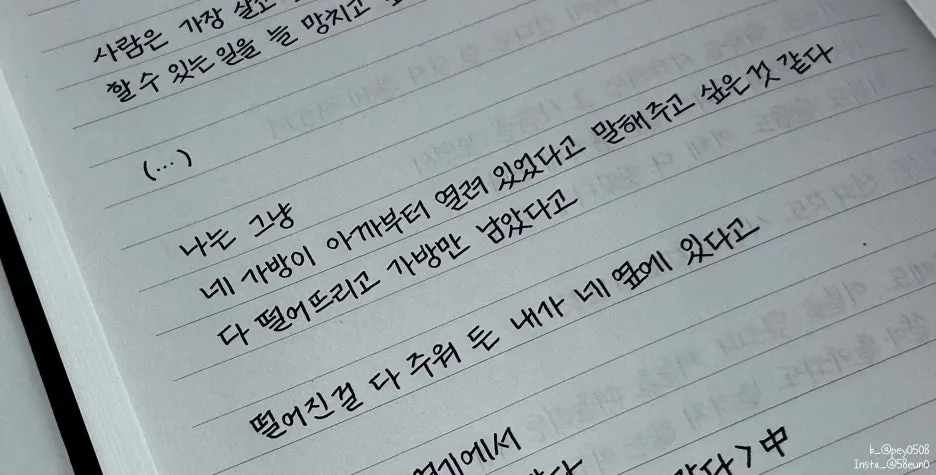 사람은 가장 살고
할 수 있는 일을 늘 망치고
(…)
나는 그냥
네 가방이 아까부터 열려 있었다고 말해주고 싶은 것 같다
다 떨어뜨리고 가방만 남았다고
떨어진걸 다 주워 든 내가 네 옆에 있다고
같다 > 中
b_@pey0508
Insta_@58eun0